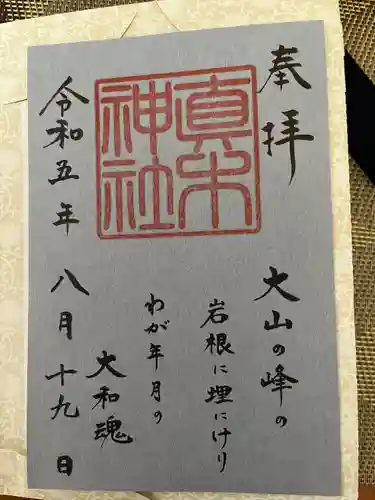 奉拝
真木
神社
大山の峰の
岩根に埋にけり
わが年月の
大和魂
令和五年八月十九日